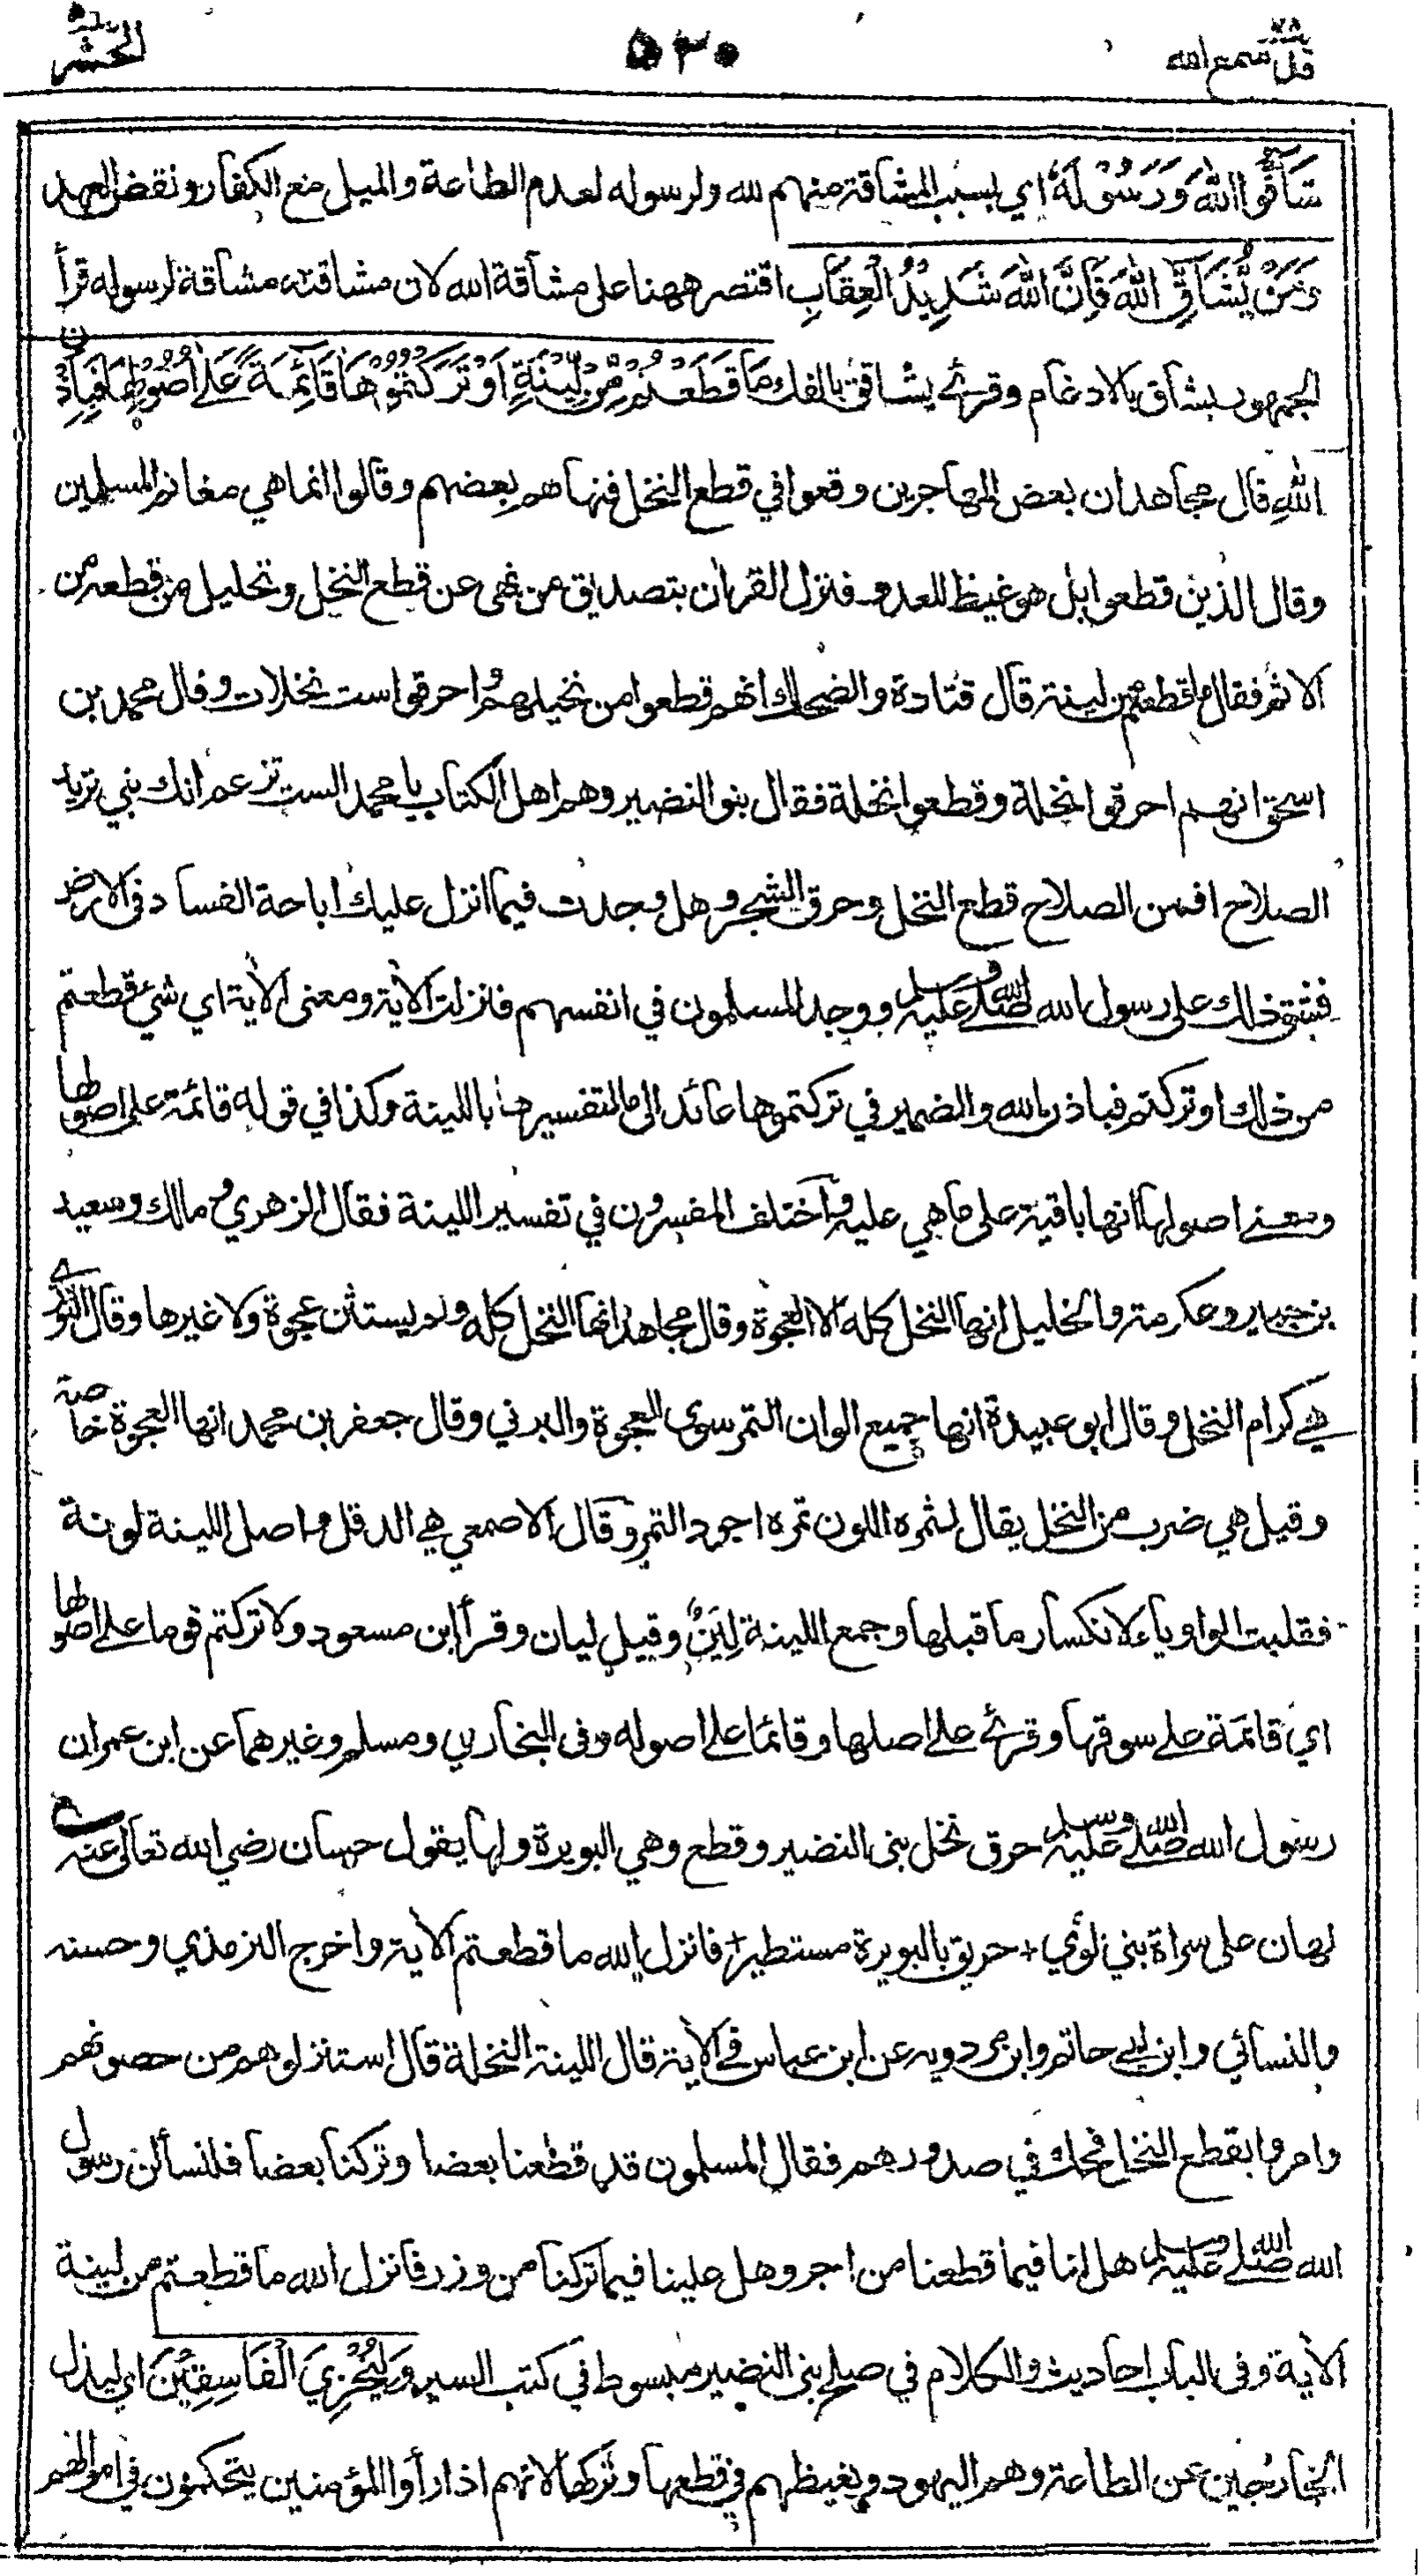 قد سمع الله ٢٨
٥٣٠
الحشر
شَآقُّوا اللّٰهَ وَرَسُوْلَهٗ اي بسبب المشاقة منهم لله ولرسوله لعدم الطاعة والميل مع الكفار ونقض العهد
وَمَنْ يُّشَآقِّ اللّٰهَ فَاِنَّ اللّٰهَ شَدِيْدُ الْعِقَابِ اقتصر ههنا على مشاقة الله لان مشاقته مشاقة لرسوله قرأ
الجمهور يشاق بالادغام وقرئ يشاقق بالفك مَا قَطَعْتُمْ مِّنْ لِّيْنَةٍ اَوْ تَرَكْتُمُوْهَا قَآئِمَةً عَلٰٓى اُصُوْلِهَا فَبِاِذْنِ
اللّٰهِ قال مجاهد ان بعض المهاجرين وقعوا في قطع النخل فنهاهم بعضهم وقالوا انما هي مغانم المسلمين
وقال الذين قطعوا بل هو غيظ للعدو فنزل القرآن بتصديق من نهى عن قطع النخل وتحليل من قطعه من
الاثم فقال ما قطعتم من لينة قال قتادة والضحاك انهم قطعوا من نخيلهم واحرقوا ست نخلات وقال محمد بن
اسحق انهم احرقوا نخلة وقطعوا نخلة فقال بنو النضير وهم اهل الكتاب يا محمد الست تزعم انك نبي تريد
الصلاح افمن الصلاح قطع النخل وحرق الشجر وهل وجدت فيما انزل عليك اباحة الفساد في الارض
فشق ذلك على رسول الله صلى الله عليه وسلم ووجد المسلمون في انفسهم فانزلت الآية ومعنى الآية اي شئ قطعتم
من ذلك او تركتم فباذن الله والضمير في تركتموها عائد الى ما لتفسيرها باللينة وكذا في قوله قائمة على اصولها
ومعنى اصولها انها باقية على ما هي عليه واختلف المفسرون في تفسير اللينة فقال الزهري ومالك وسعيد
بن جبير وعكرمة والخليل انها النخل كله الا العجوة وقال مجاهد انها النخل كله ولم يستثن عجوة ولا غيرها وقال الثوري
هي كرام النخل وقال ابو عبيدة انها جميع الوان التمر سوى العجوة والبرني وقال جعفر بن محمد انها العجوة خاصة
وقيل هي ضرب من النخل يقال لثمره اللون تمره اجود التمر وقال الاصمعي هي الدقل واصل اللينة لونة
فقلبت الواو ياء لانكسار ما قبلها وجمع اللينة لِيَنٌ وقيل ليان وقرأ ابن مسعود ولا تركتم قوما على اصولها
اي قائمة على سوقها وقرئ على اصلها وقائما على اصوله وفي البخاري ومسلم وغيرهما عن ابن عمر ان
رسول الله صلى الله عليه وسلم حرق نخل بني النضير وقطع وهي البويرة ولها يقول حسان رضي الله تعالى عنه ع
لهان على سراة بني لؤي + حريق بالبويرة مستطير + فانزل الله ما قطعتم الآية واخرج الترمذي وحسنه
والنسائي وابن ابي حاتم وابن مردويه عن ابن عباس في الآية قال اللينة النخلة قال استنزلوهم من حصونهم
وامروا بقطع النخل فحاك في صدورهم فقال المسلمون قد قطعنا بعضا وتركنا بعضا فلنسألن رسول
الله صلى الله عليه وسلم هل لنا فيما قطعنا من اجر وهل علينا فيما تركنا من وزر فانزل الله ما قطعتم من لينة
الآية وفي الباب احاديث والكلام في صلح بني النضير مبسوط في كتب السير وَلِيُخْزِيَ الْفَاسِقِيْنَ اي ليذل
الخارجين عن الطاعة وهم اليهود ويغيظهم في قطعها وتركها لانهم اذا رأوا المؤمنين يتحكمون في اموالهم